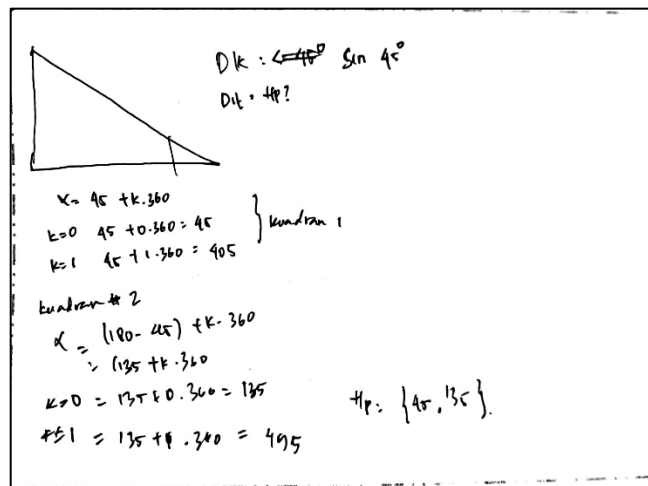 Dk : <=45° Sin 45°
Dit = Hp?
x = 45 + k.360
k=0 45 + 0.360 = 45
k=1 45 + 1.360 = 405
} kuadran 1
kuadran # 2
α = (180 - 45) + k. 360
= (135 + k.360
k=0 = 135 + 0.360 = 135
k=1 = 135 + 1.360 = 495
Hp = {45, 135}.